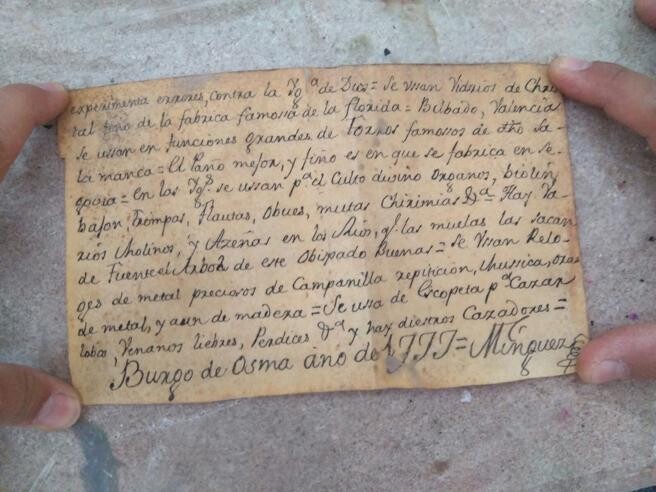 experimenta errores, contra la Ygª de Dios = Se vssan Vidrios de Chris
tal fino de la fabrica famossa de la florida = Bilbado, Valencia
se ussan en funciones grandes de Toxos famossos de dho Sa-
lamanca = El Paño mejor, y fino es en que se fabrica en Se-
govia = en las Ygªˢ se ussan pª el Culto divino Organos, biolin,
bajon, Trompas, Flautas, Obues, Chirimias &ª = Hay Va-
rios Molinos, y Azeñas en los Rios, q! las muelas las sacan
de Fuentelarbol de este Obispado Buenas = Se Vssan Relo-
ges de metal preciosos de Campanilla repiticion, Mussica,
de metal, y aun de madera = Se ussa de Escopeta pª Cazar
lobos, Venanos liebres, Perdices &ª y hay diestros Cazadores =
Burgo de Osma año de 1777 = Mińguez